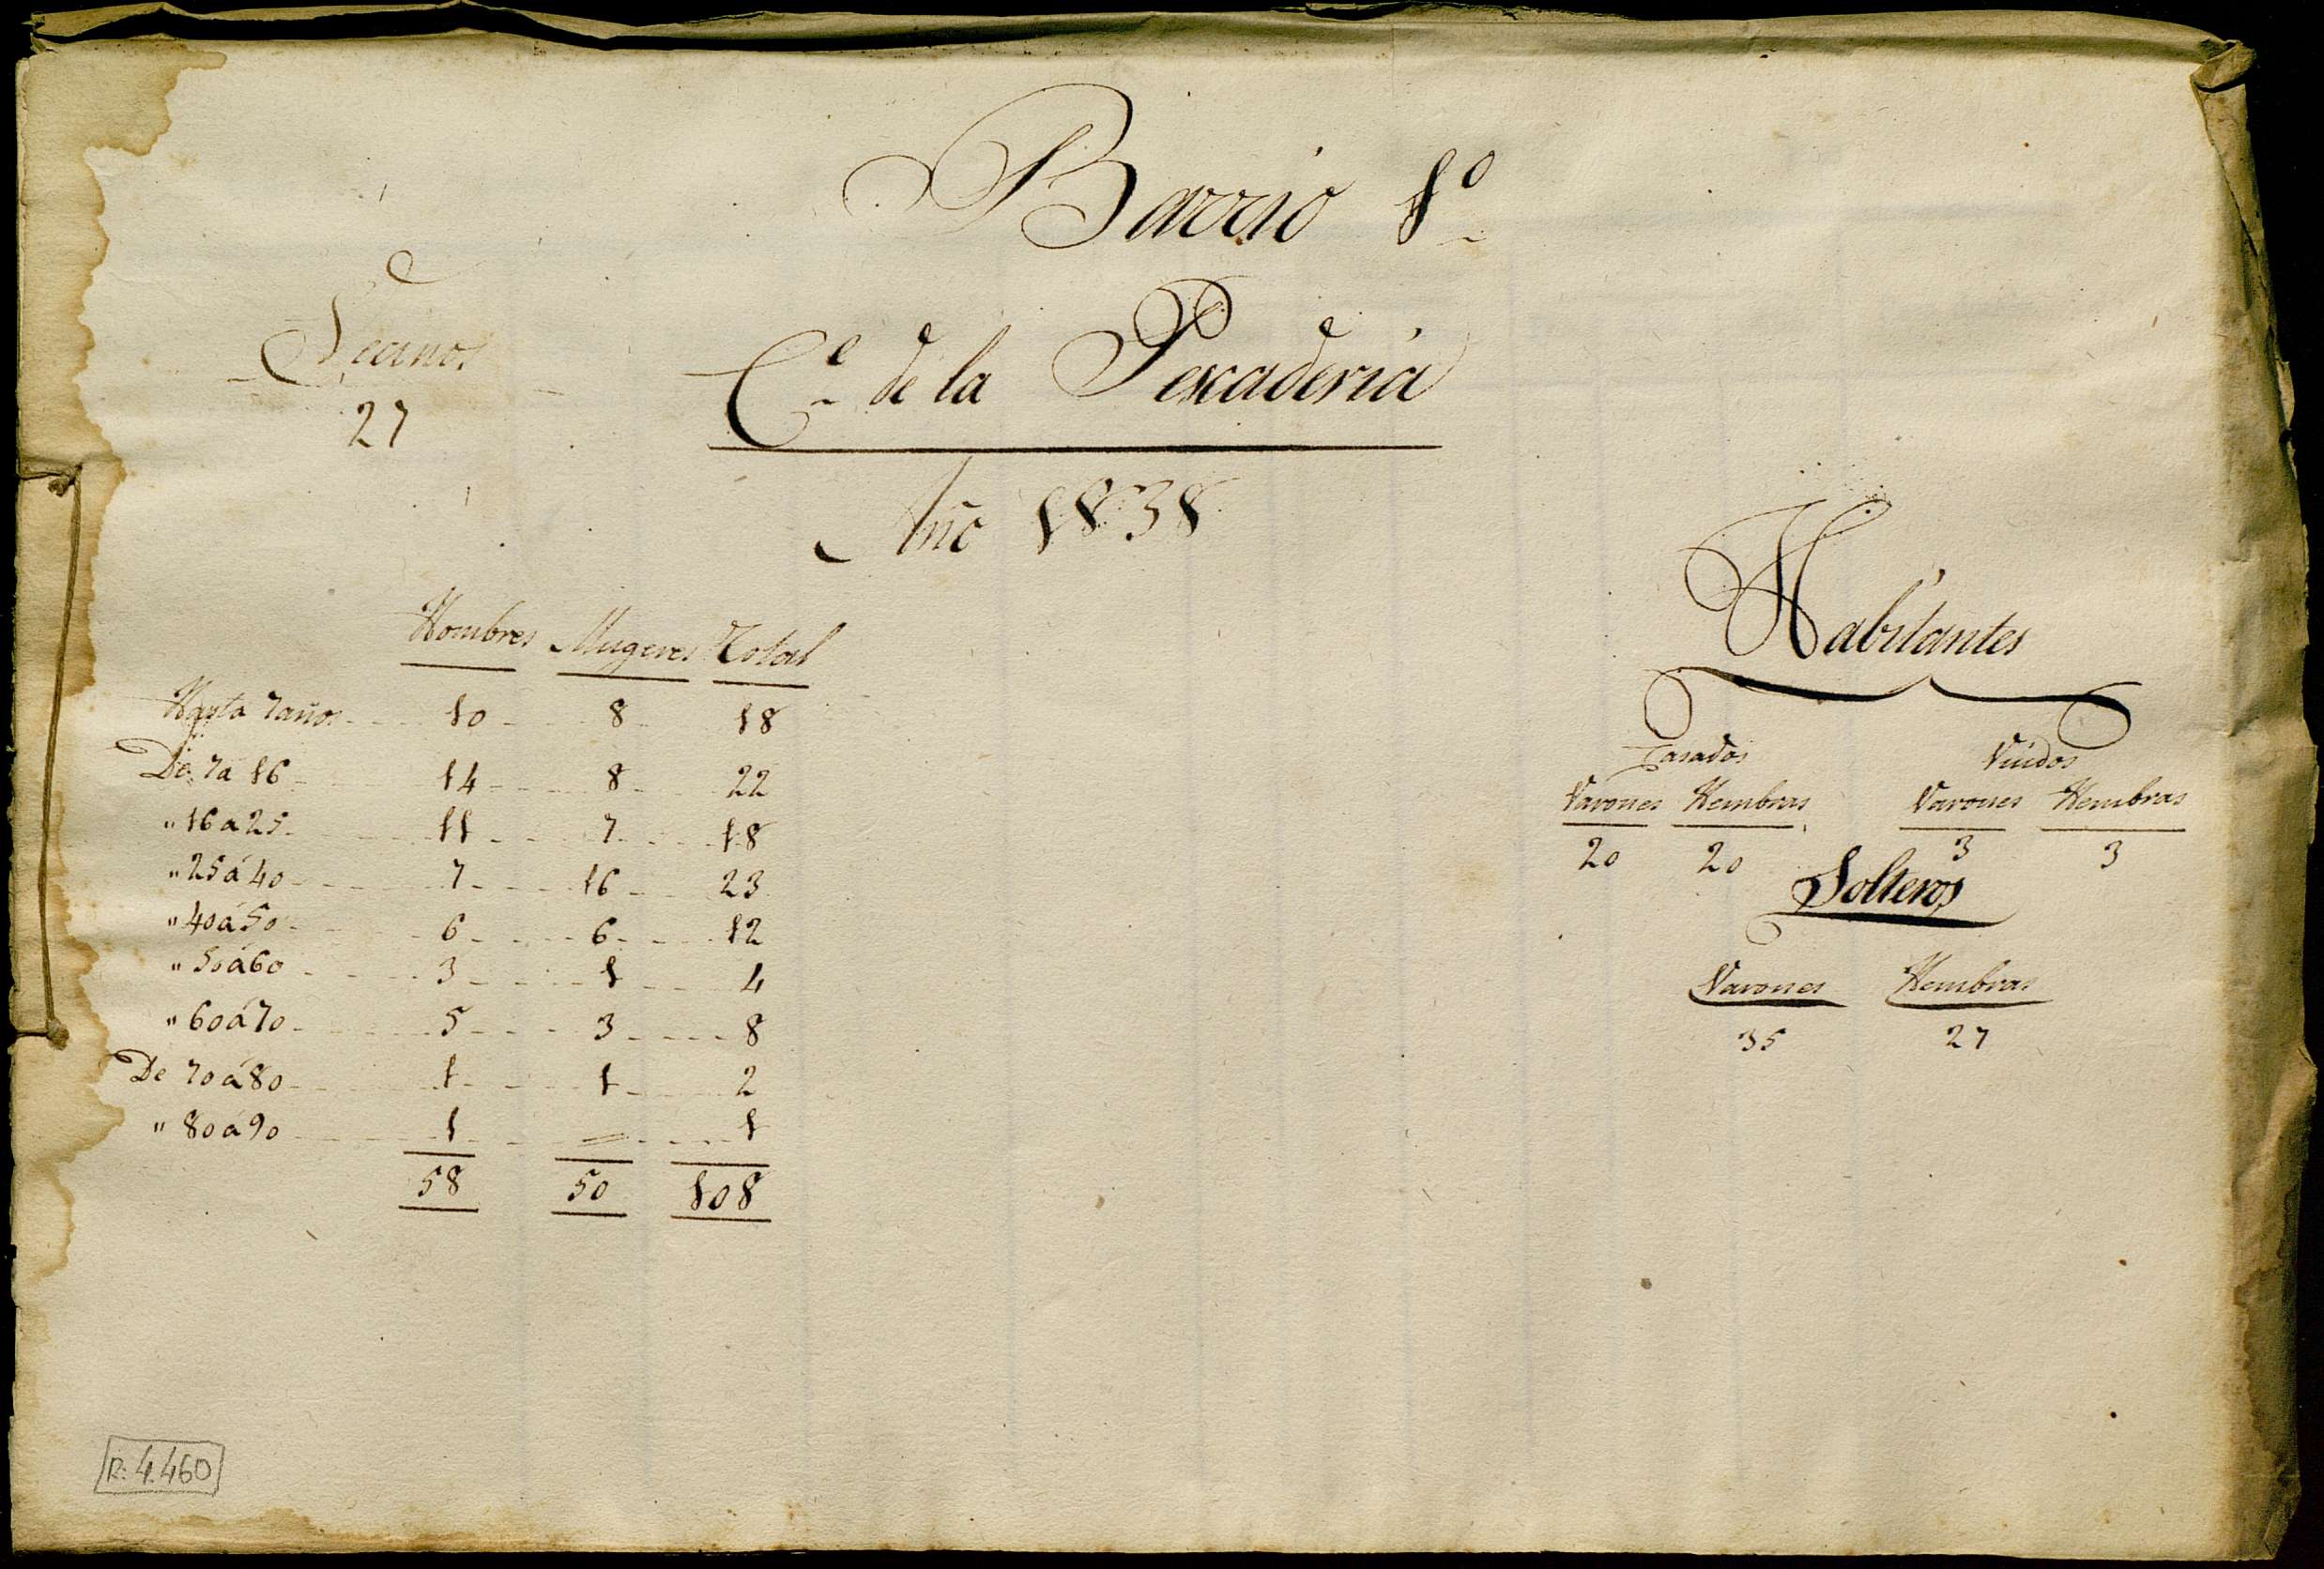 Barrio 1º
Vecinos
27
C.e de la Pescaderia
Año 1838
Hombres Mugeres Total
Hasta 7 años 10 8 18
De 7 a 16 14 8 22
" 16 a 25 11 7 18
" 25 á 40 7 16 23
" 40 á 50 6 6 12
" 50 á 60 3 1 4
" 60 á 70 5 3 8
De 70 á 80 1 1 2
" 80 á 90 1 = 1
58 50 108
Habitantes
Casados Viudos
Varones Hembras Varones Hembras
20 20 3 3
Solteros
Varones Hembras
35 27
R: 4.460